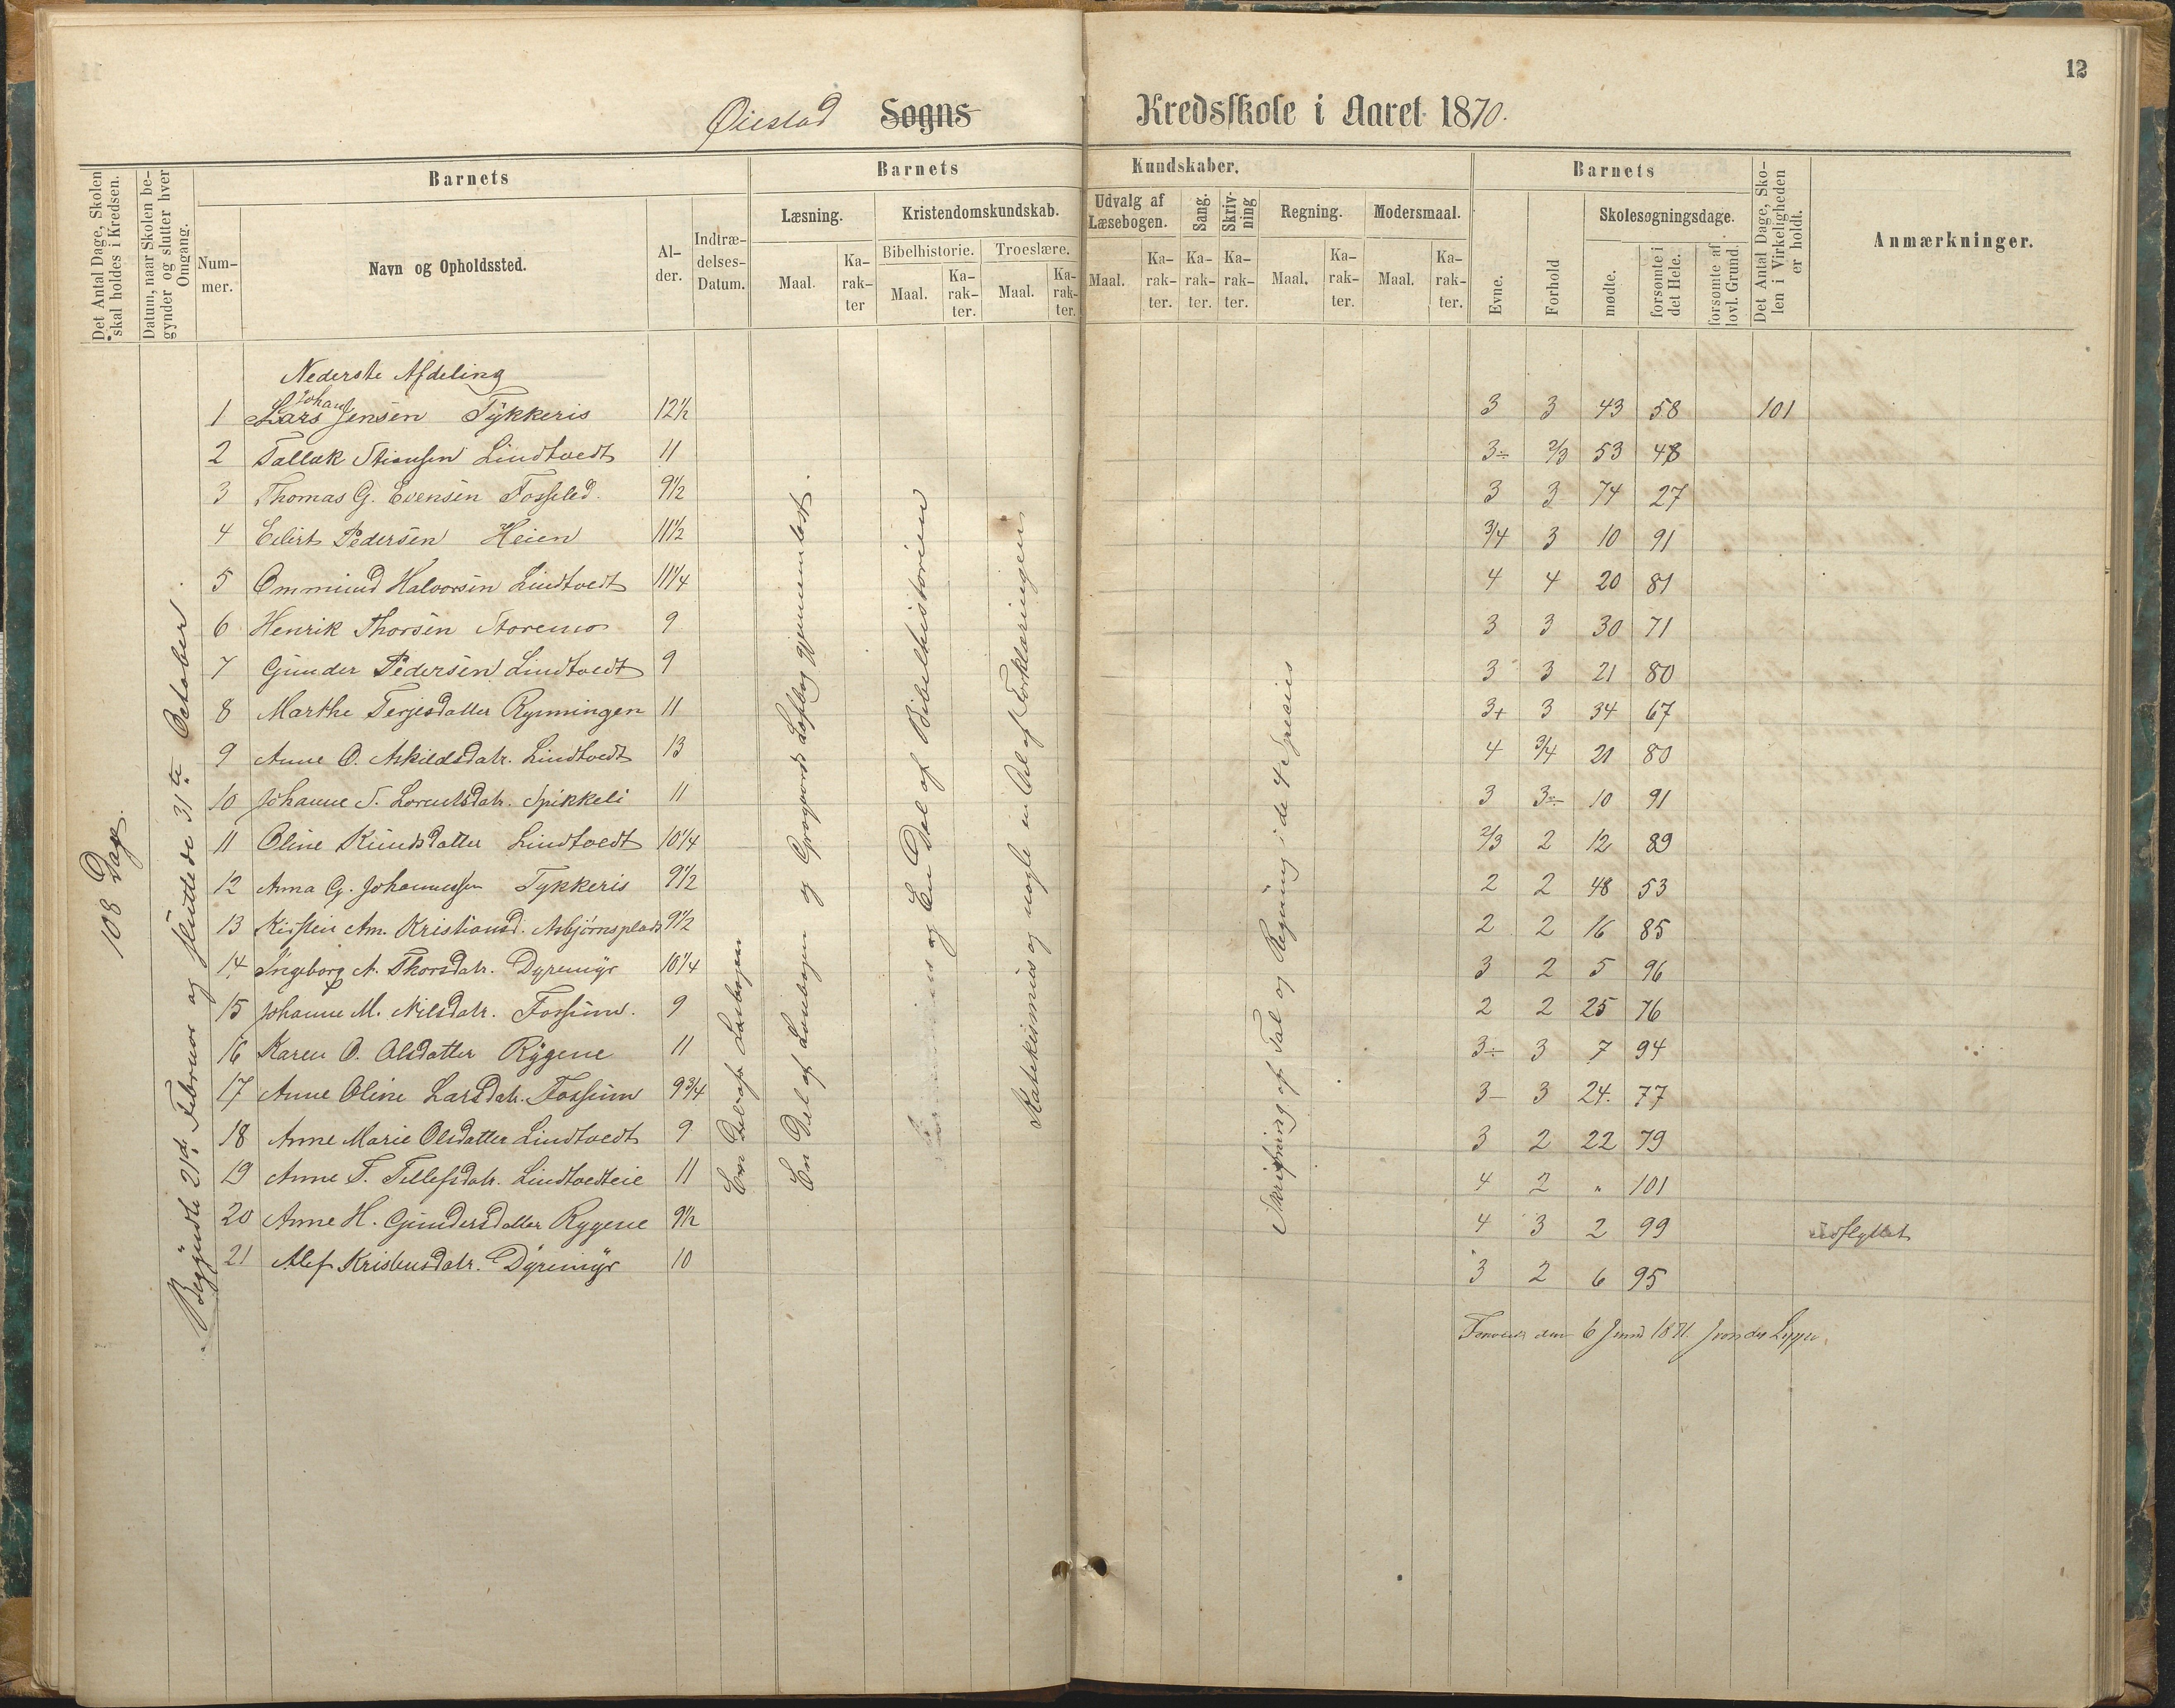 12
Øiestad Sogns Kredsskole i Aaret 1870.
Det Antal Dage, Skolen skal holdes i Kredsen.
Datum, naar Skolen begynder og slutter hver Omgang.
Barnets
Nummer.
Navn og Opholdssted.
Alder.
Indtrædelses-Datum.
Barnets Kundskaber.
Læsning.
Maal.
Karakter
Kristendomskundskab.
Bibelhistorie.
Maal.
Karakter.
Troeslære.
Maal.
Karakter.
Udvalg af Læsebogen.
Maal.
Karakter.
Sang.
Karakter.
Skrivning
Karakter.
Regning.
Maal.
Karakter.
Modersmaal.
Maal.
Karakter.
Barnets
Evne.
Forhold
Skolesøgningsdage.
mødte.
forsømte i det Hele.
forsømte af lovl. Grund.
Det Antal Dage, Skolen i Virkeligheden er holdt.
Anmærkninger.
108 Dage
Begyndte 21de Februar og sluttede 31te October.
Nederste Afdeling
1 Lars Johan Jensen Tykkeris 12½ 3 3 43 58 101
2 Tallak Stiansen Lindtvedt 11 3÷ 2/3 53 48
3 Thomas G. Evensen Fosselid. 9½ 3 3 74 27
4 Eilert Pedersen Heien 11½ 3/4 3 10 91
5 Ommund Halvorsen Lindtvedt 11¼ 4 4 20 81
6 Henrik Thorsen Storemo 9 3 3 30 71
7 Gunder Pedersen Lindtvedt 9 3 3 21 80
8 Marthe Terjesdatter Rynningen 11 3+ 3 34 67
9 Anne O. Askildsdatr. Lindtvedt 13 4 3/4 21 80
10 Johanne T. Lorentsdatr. Spikkeli 11 3 3÷ 10 91
11 Oline Knudsdatter Lindtvedt 10¼ 2/3 2 12 89
12 Anna G. Johannessen Tykkeris 9½ 2 2 48 53
13 Kirsten Am. Kristiansd. Asbjørnsplads 9½ 2 2 16 85
14 Ingeborg A. Thorsdatr. Dyremyr 10¼ 3 2 5 96
15 Johanne M. Nilsdatr. Fossum. 9 2 2 25 76
16 Karen O. Olsdatter Rygene 11 3÷ 3 7 94
17 Anne Oline Larsdatr. Fossum 9¾ 3- 3 24. 77
18 Anne Marie Olsdatter Lindtvedt 9 3 2 22 79
19 Anne T. Tellefsdatr. Lindtvedteie 11 4 2 " 101
20 Anne H. Gundersdatter Rygene 9½ 4 3 2 99 udflyttet
21 Alef Kristensdatr. Dyremyr 10 3 2 6 95
En Del af Læsebogen
En Del af Læsebogen og Grogaards Læsebog gjennemlæst.
og En Del af Bibelhistorien
Katekismus og nogle en Del af Forklaringen
Skrivning af Tal og Regning i de 4 Species
den 6 Juni 1871. J von der Lippe